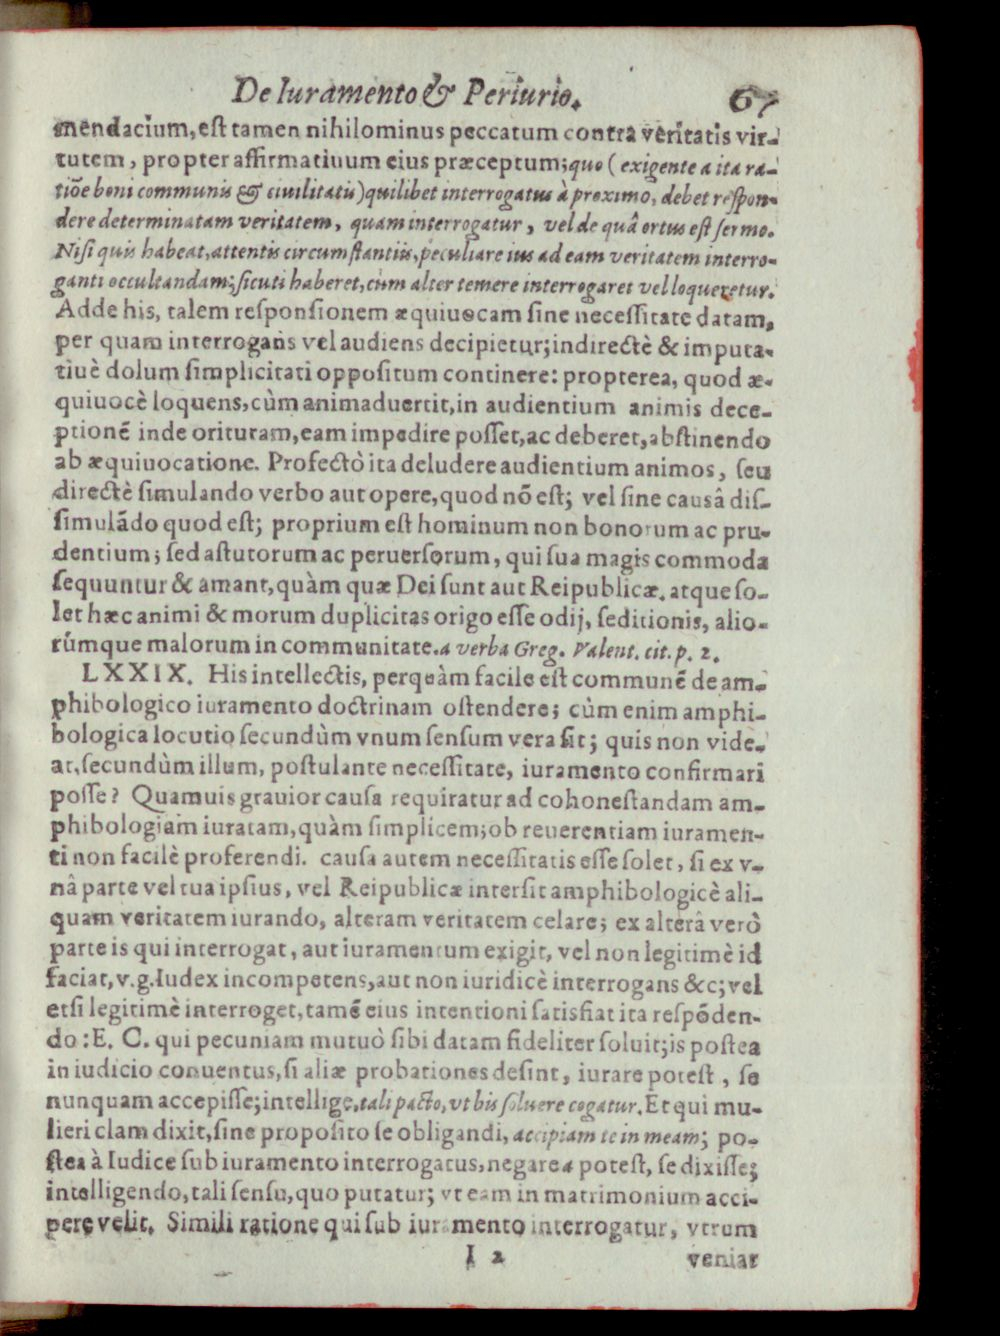 De Iuramento & Periurio. 67
mendacium, est tamen nihilominus peccatum contra veritatis vir-
tutem, propter affirmatiuum eius præceptum; quo ( exigente a ita ra-
tiōe boni communis & ciuilitatis) quilibet interrogatus à proximo, debet respon-
dere determinatam veritatem, quam interrogatur, vel de quâ ortus est sermo.
Nisi quis habeat, attentis circumstantiis, peculiare ius ad eam veritatem interro-
ganti occultandam; sicuti haberet, cùm alter temere interrogaret vel loqueretur.
Adde his, talem responsionem æquiuocam sine necessitate datam,
per quam interrogans vel audiens decipietur; indirectè & imputa-
tiuè dolum simplicitati oppositum continere: propterea, quod æ-
quiuocè loquens, cùm animaduertit, in audientium animis dece-
ptionē inde orituram, eam impedire posset, ac deberet, abstinendo
ab æquiuocatione. Profectò ita deludere audientium animos, seu
directè simulando verbo aut opere, quod nō est; vel sine causâ dis-
simulādo quod est; proprium est hominum non bonorum ac pru-
dentium; sed astutorum ac peruersorum, qui sua magis commoda
sequuntur & amant, quàm quæ Dei sunt aut Reipublicæ. atque so-
let hæc animi & morum duplicitas origo esse odij, seditionis, alio-
rúmque malorum in communitate. a verba Greg. Valent. cit. p. 2.
LXXIX. His intellectis, perquàm facile est communē de am-
phibologico iuramento doctrinam ostendere; cùm enim amphi-
bologica locutio secundùm vnum sensum vera sit; quis non vide-
at, secundùm illum, postulante necessitate, iuramento confirmari
posse? Quamuis grauior causa requiratur ad cohonestandam am-
phibologiam iuratam, quàm simplicem; ob reuerentiam iuramen-
ti non facilè proferendi. causa autem necessitatis esse solet, si ex v-
nâ parte vel tua ipsius, vel Reipublicæ intersit amphibologicè ali-
quam veritatem iurando, alteram veritatem celare; ex alterâ verò
parte is qui interrogat, aut iuramentum exigit, vel non legitimè id
faciat, v.g. Iudex incompetens, aut non iuridicè interrogans &c; vel
etsi legitimè interroget, tamē eius intentioni satisfiat ita respōden-
do: E. C. qui pecuniam mutuò sibi datam fideliter soluit; is postea
in iudicio conuentus, si aliæ probationes desint, iurare potest, se
nunquam accepisse; intellige, tali pacto, vt bis soluere cogatur. Et qui mu-
lieri clam dixit, sine proposito se obligandi, accipiam te in meam; po-
stea à Iudice sub iuramento interrogatus, negare a potest, se dixisse;
intelligendo, tali sensu, quo putatur; vt eam in matrimonium acci-
pere velit. Simili ratione qui sub iuramento interrogatur, vtrum
I 2 veniat